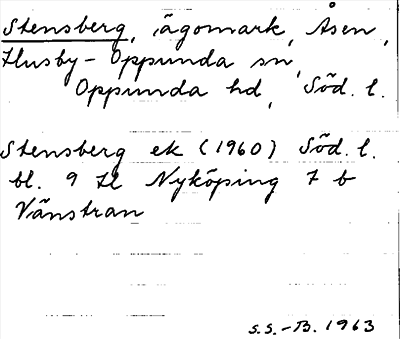 Stensberg, ägomark, Åsen,
Husby-Oppunda sn,
Oppunda hd, Söd. l.
Stensberg ek (1960) Söd. l.
bl. 9 H Nyköping 7 b
Vänstran
S.S.-B. 1963